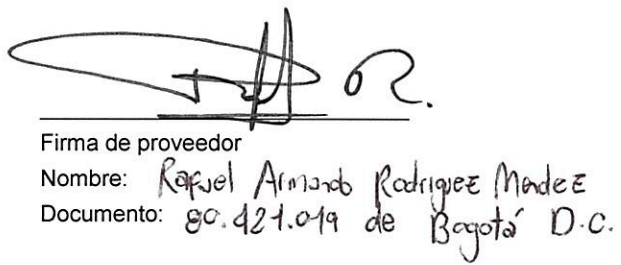 Firma de proveedor
Nombre: Rafael Armando Rodriguez Mendez
Documento: 80.421.019 de Bogotá D.C.